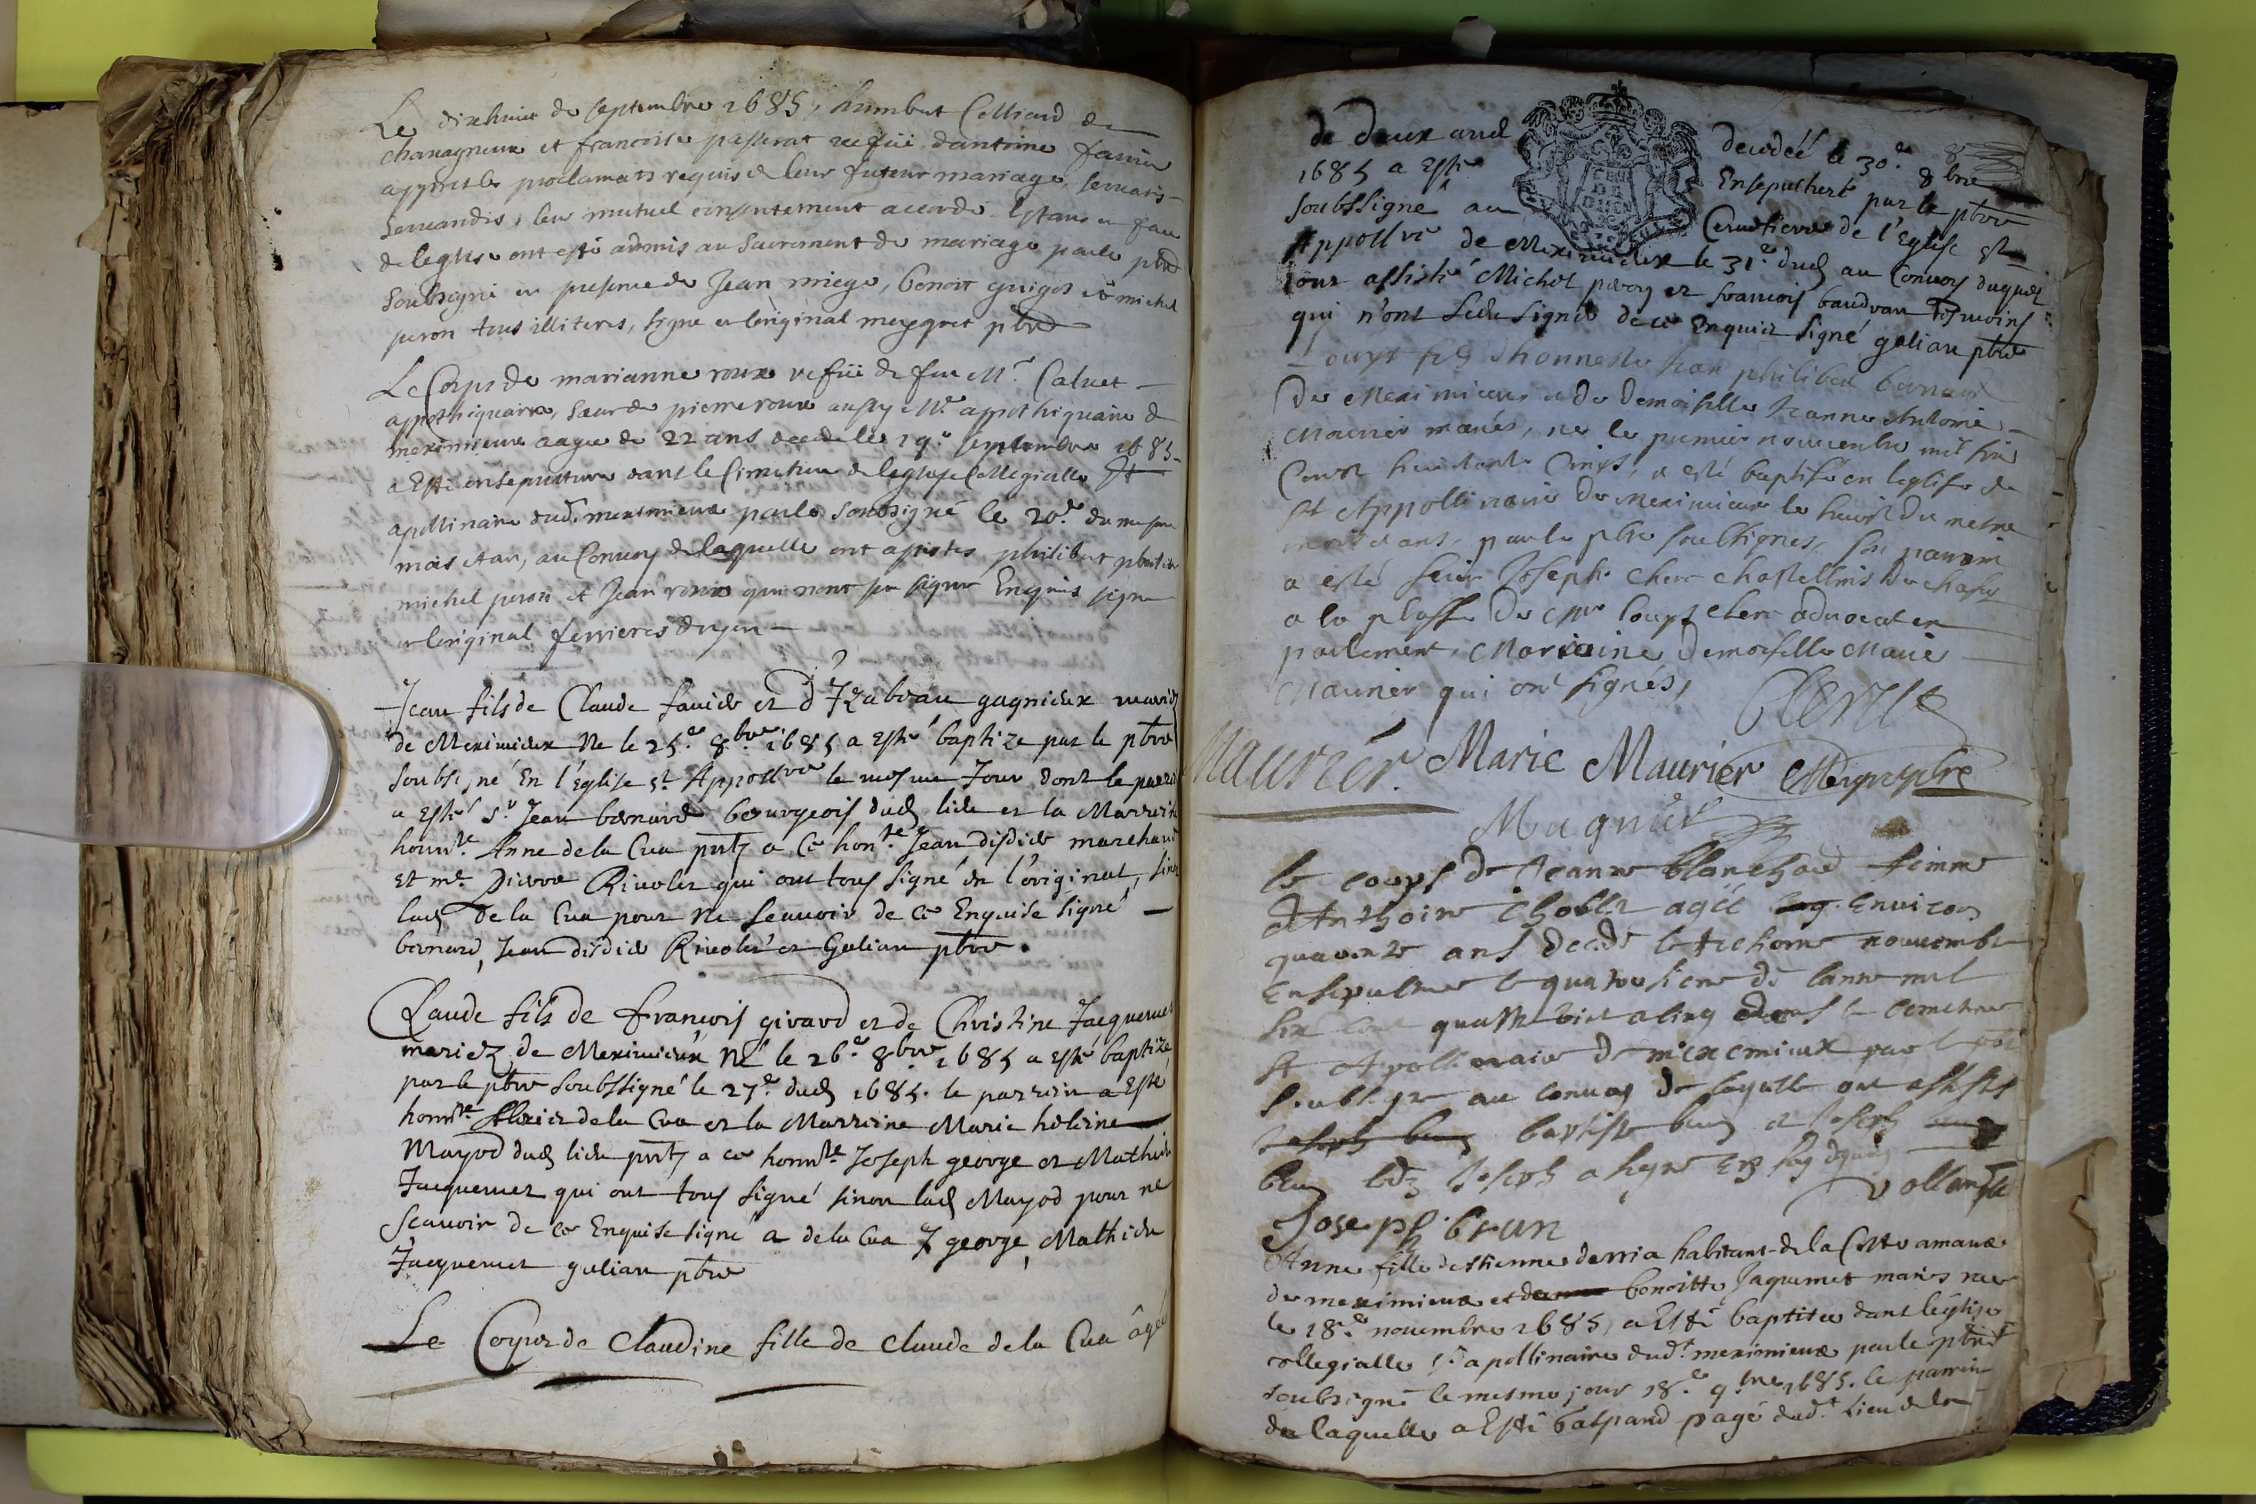 Le dixhuict de septembre 1685, humbert Colliard de
chanagneux et francoise passerat vefue dantoine favier
appres les proclamats requis de leur futeur mariage, servatis
servandis, leur mutuel consentement accorde estans en face
de leglise ont esté admis au Sacrement de mariage par le pbre
Soubsigné en presence de Jean miege, benoit guigot et michel
peron tous illiteres, signe en loriginal meygret pbre
Le Corps de marianne roux vefue de feu Mr. Calvet
appothiquaire, soeur de pierre roux aussy Mre appothiquaire de
meximieux aagee de 22 ans decedee le 19e septembre 1685
a Esté ensepulturee dans le Cimetiere de leglise Collegialle St
apollinaire dud. meximieux par le soubsigné le 20e du mesme
mois et an, au Convoy de laquelle ont assistes philibert
michel peron et Jean roux qui nont sceu signer Enquis signe
en loriginal ferrieres doyen
Jean fils de Claude favier et d'Izabeau gagnieux mariez
de Meximieux Ne le 25e 8bre 1685 a Esté baptize par le pbre
soubsigné En l'Eglise St Appollre le mesme Jour dont le parrin
a Esté Sr Jean bernard bourgeois dud lieu et la Marreine
honnte. Anne de la Cua pntz a Ce honte. Jean disdier marchand
Et me Pierre Rivolet qui ont tous signé en l'original, sinon
lad de la Cua pour ne scauoir de ce Enquise signé
bernard, Jean disdier Rivolet et Galian pbre.
Claude fils de Francois girard et de Christine Jacquemet
mariez de Meximieux Né le 26e 8bre 1685 a esté baptize
par le pbre soubssigné le 27e dud 1685. le parrein a Esté
honnte. de la Cua et la Marreine Marie heleine
Mayod dud lieu pntz a ce honnte Joseph george et Mathieu
Jacquemet qui ont tous signé sinon lad Mayod pour ne
Scauoir de ce Enquise signé a de la Cua J george, Mathieu
Jacquemet galian pbre
Le Corps de Claudine fille de Claude de la Cua âgée
de deux ans decedée le 30e 8bre
1685 a Esté Ensepulturée par le pbre
soubssigné au Cemetiere de l'Eglise St
Appollre de Meximieux le 31e dud au Convoy duquel
ont assisté Michel peron et francois baudran tesmoins
qui n'ont sceu signer de ce Enquis signé galian pbre
Louys fils d'honneste Jean philibert bernard
De Meximieux et de Demoiselle Jeanne Antoine
Maurier mariés, ne le premier nouvembre mil six
Cent huictante Cinqs, a esté baptisé en leglise de
St Appollinaire de Meximieux le huict du mesme
mois et ans, par le pbre soubsigné, son parrein
a esté sieur Joseph Clerc chastellein de
a la plasse de Mre louys Clerc advocat en
parlement, Marraine Demoiselle Marie
Maurier qui ont signés,
Clerc
Maurier. Marie Maurier Meygret pbre
Magnin
le corps de Jeanne blanchard femme
d'Anthoine agée environ
quarente ans decede le tresieme nouvembre
Ensepulturee le quatorsieme de lanne mil
six cent quattre vint a cinq dans le cemetiere
St Apollinaire de meximieux par le
soubsigne au convoy de laquelle ont assistes
baptiste brun et Joseph
brun led Joseph a signe
Volland
Joseph brun
Anne fille destienne derria habitant de la Coste amane
de meximieux et benoitte Jaquemet maries nee
le 18e novembre 1685, a Esté baptisee dans leglise
collegialle St apollinaire dud. meximieux par le pbre
soubsigné le mesme jour 18e 9bre 1685. le parrin
de laquelle a Esté Gaspand pagé dud. lieu de la